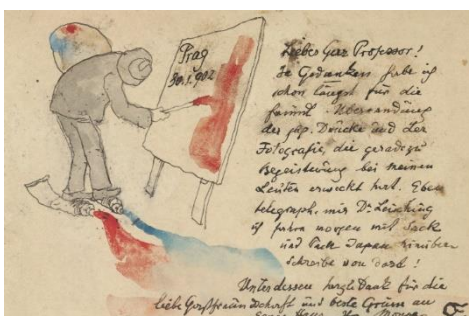 Prag
30.1.902
Lieber Herr Professor!
In Gedanken habe ich
schon längst für die
freundl. Übersendung
der jap. Drucke und der
Fotografie, die geradezu
Begeisterung bei meinen
Leuten erweckt hat. Eben
telegraph. mir Dr. Leisching
ich fahre morgen mit Sack
und Pack Japan hinüber
schreibe von dort!
Unterdessen herzl. Dank für die
liebe Gastfreundschaft und beste Grüße an